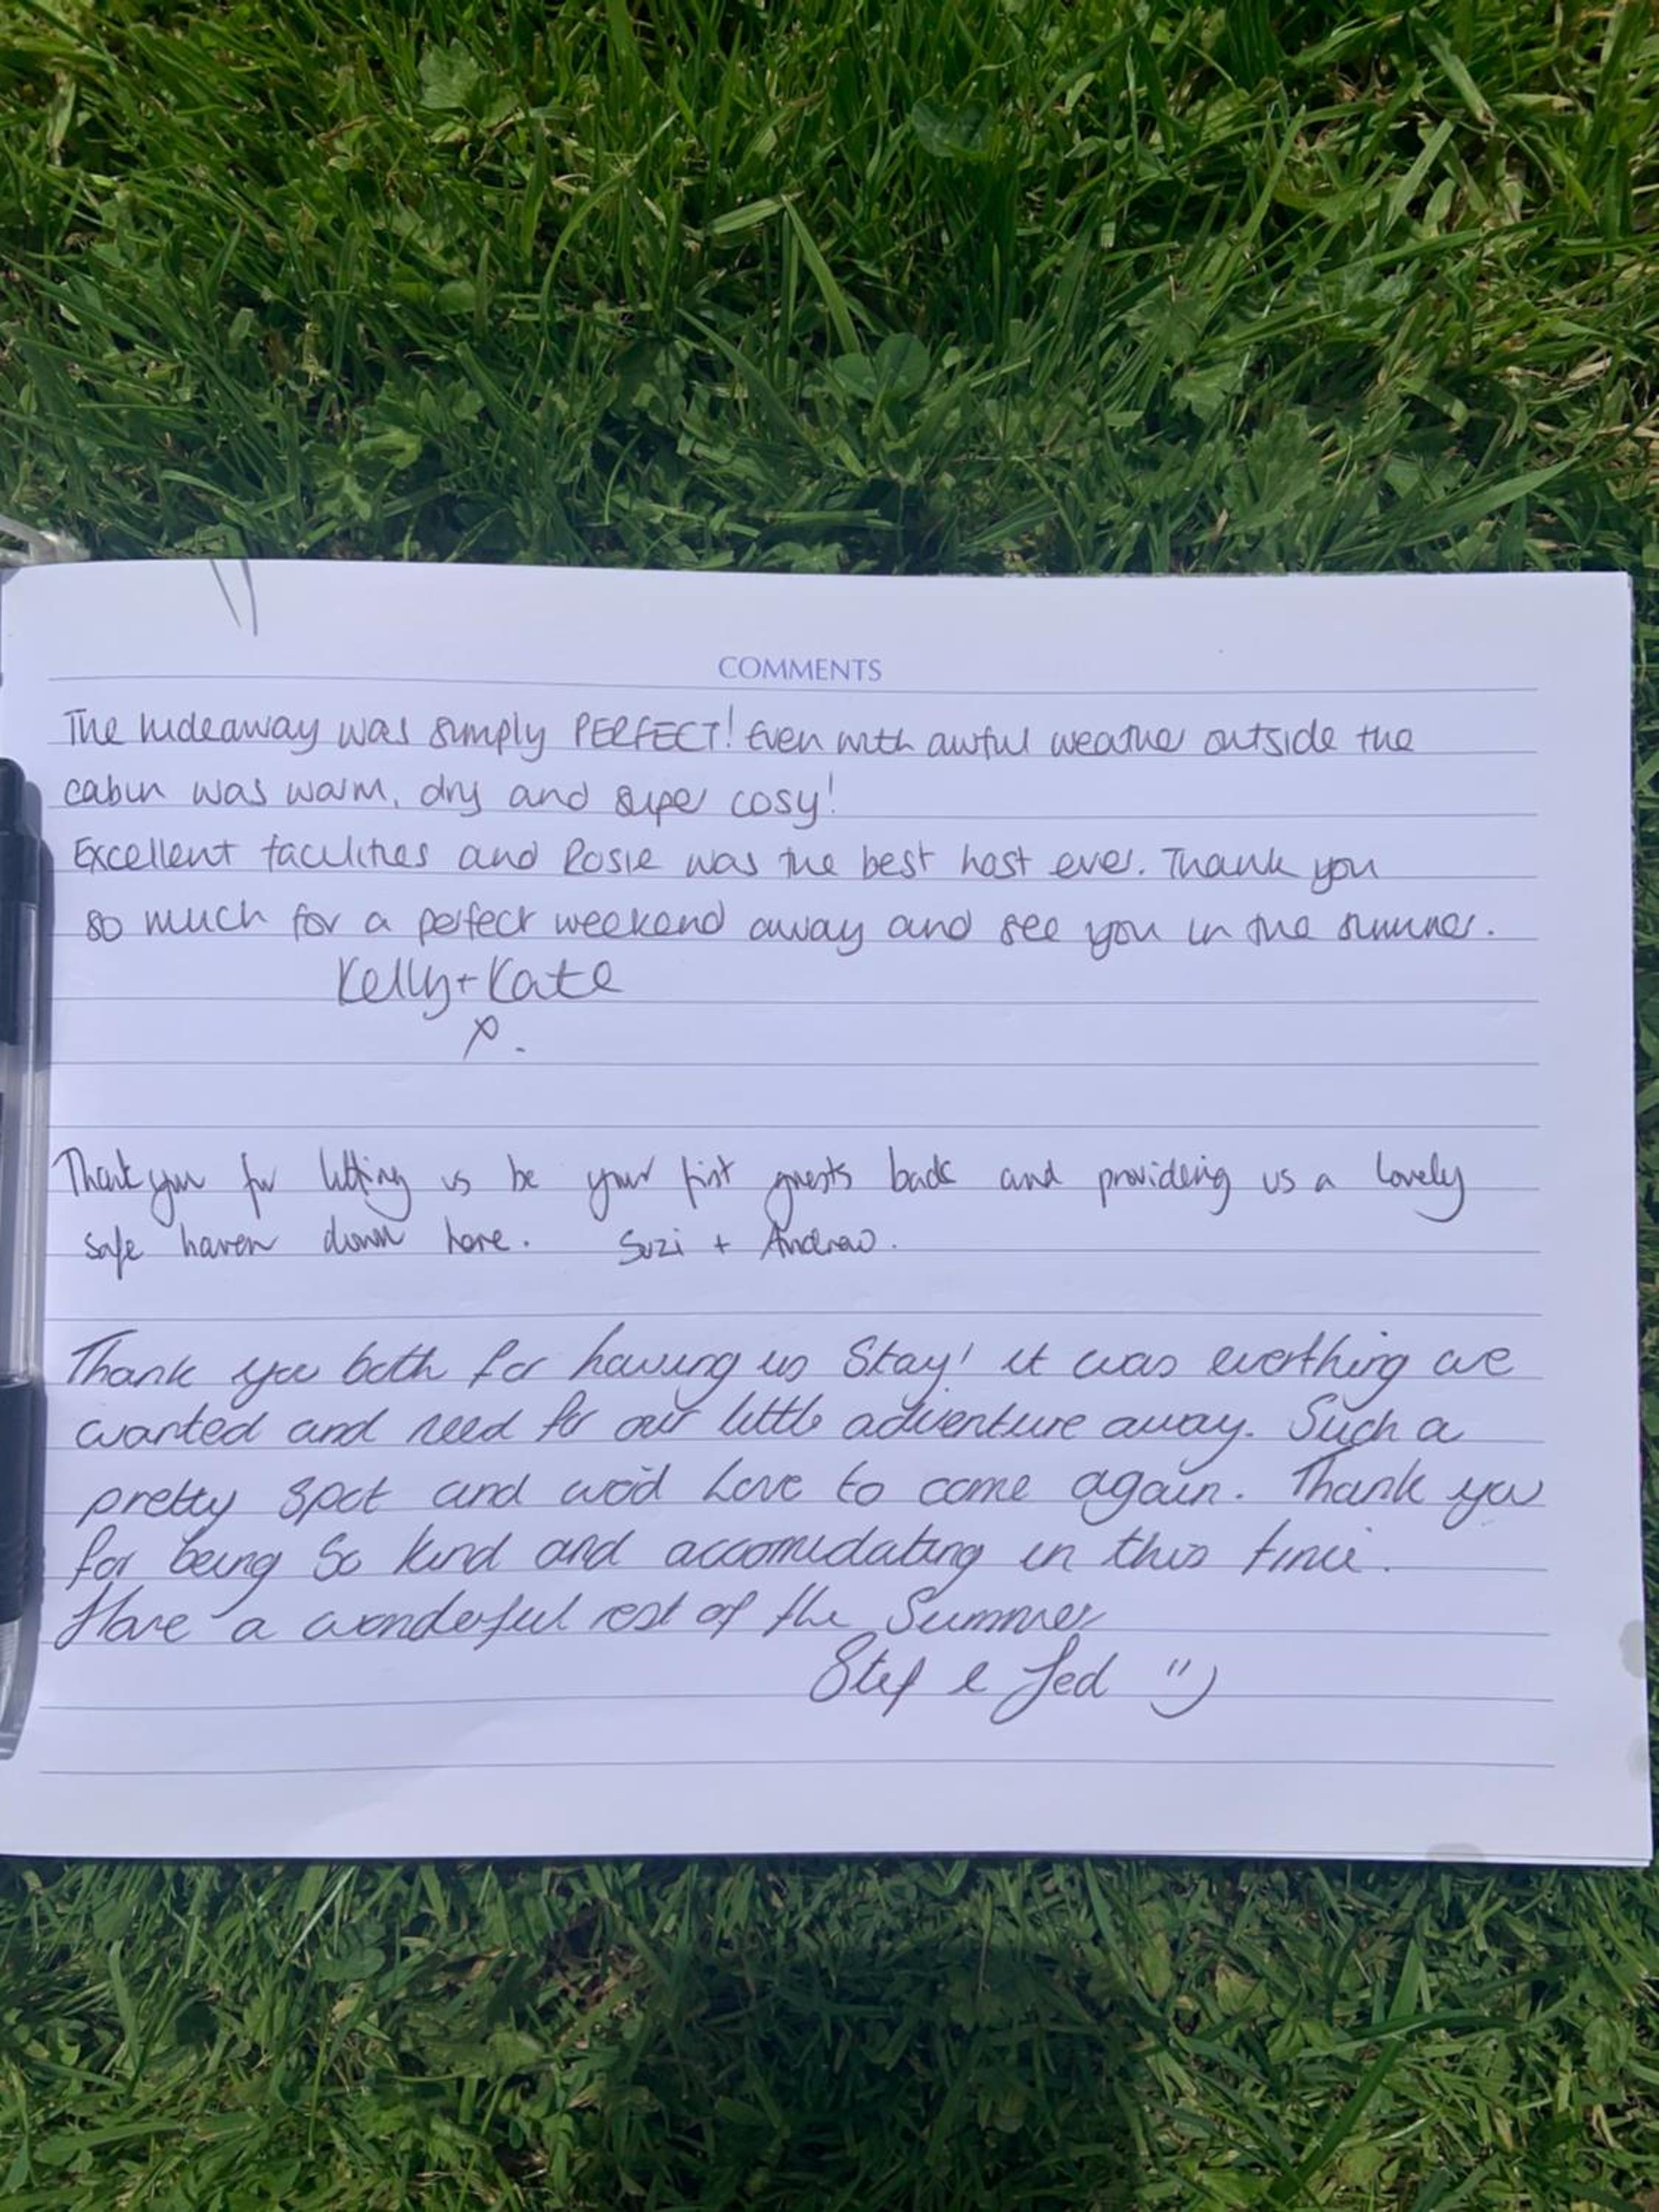 COMMENTS
The hideaway was simply PERFECT! Even with awful weather outside the
cabin was warm, dry and super cosy!
Excellent facilities and Rosie was the best host ever. Thank you
so much for a perfect weekend away and see you in the summer.
Kelly + Kate
x.
Thank you for letting us be your first guests back and providing us a lovely
safe haven down here. Suzi + Andrew.
Thank you both for having us Stay! it was everthing we
wanted and need for our little adventure away. Such a
pretty spot and wed love to come again. Thank you
for being so kind and accomidating in this time.
Have a wonderful rest of the Summer
Stef & Jed ")